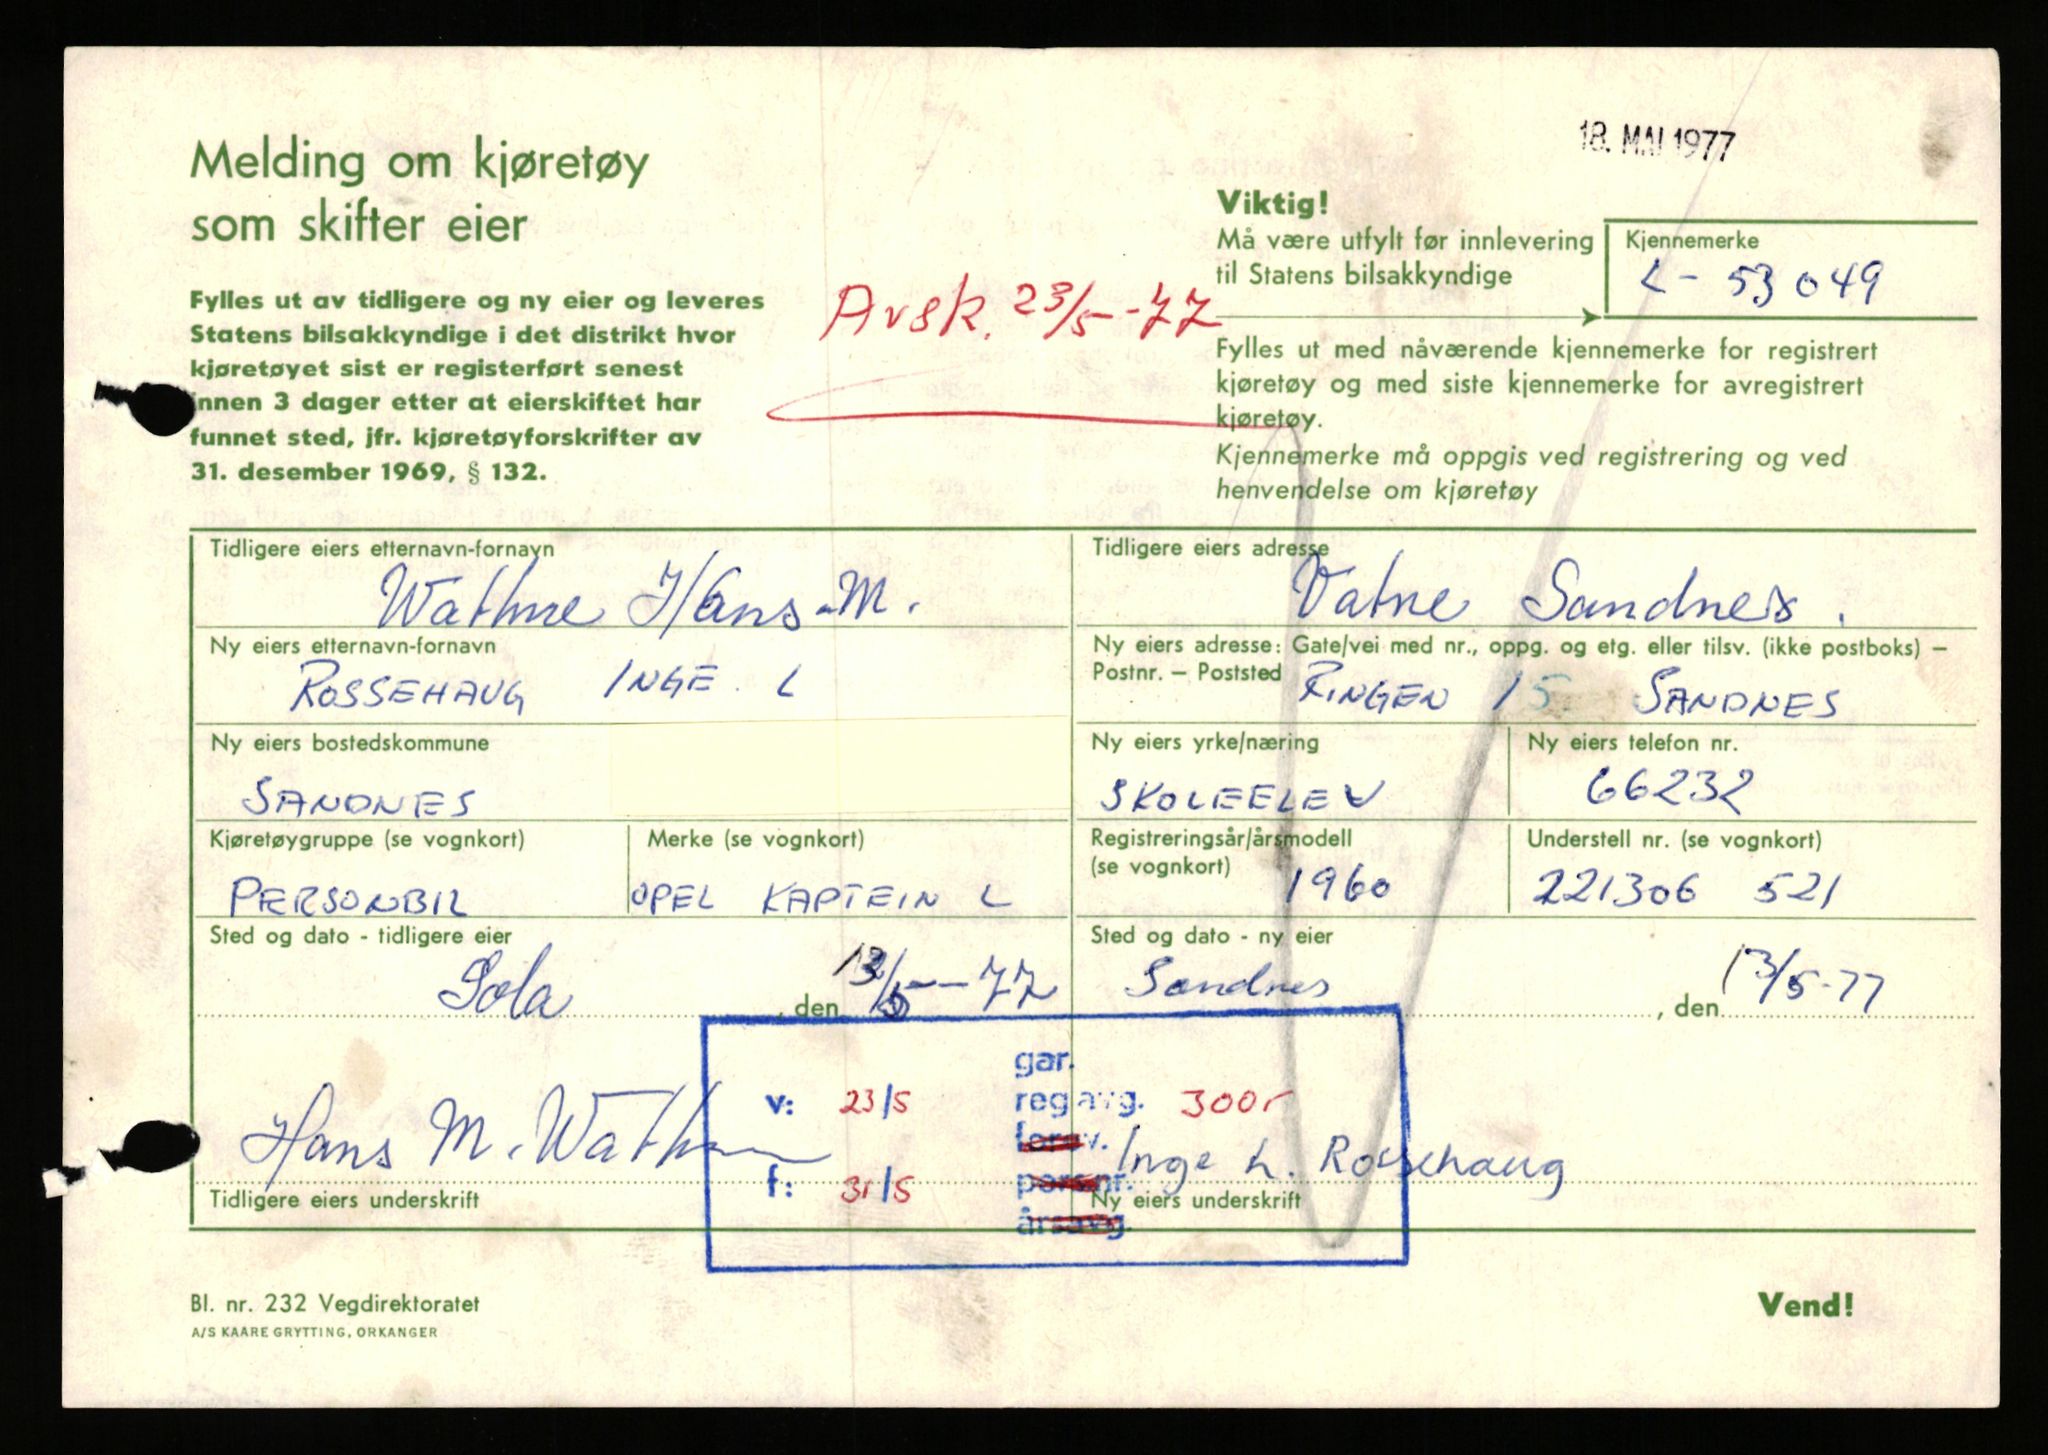 18. MAI 1977
Melding om kjøretøy
som skifter eier
Fylles ut av tidligere og ny eier og leveres
Statens bilsakkyndige i det distrikt hvor
kjøretøyet sist er registerført senest
innen 3 dager etter at eierskiftet har
funnet sted, jfr. kjøretøyforskrifter av
31. desember 1969, § 132.
Avsk. 23/5-77
Viktig!
Må være utfylt før innlevering
til Statens bilsakkyndige
Kjennemerke
L - 53049
Fylles ut med nåværende kjennemerke for registrert
kjøretøy og med siste kjennemerke for avregistrert
kjøretøy.
Kjennemerke må oppgis ved registrering og ved
henvendelse om kjøretøy
Tidligere eiers etternavn-fornavn
Wathne Hans M.
Tidligere eiers adresse
Vatne Sandnes.
Ny eiers etternavn-fornavn
ROSSEHAUG INGE. L
Ny eiers adresse: Gate/vei med nr., oppg. og etg. eller tilsv. (ikke postboks) –
Postnr. – Poststed
RINGEN 15. SANDNES
Ny eiers bostedskommune
SANDNES
Ny eiers yrke/næring
SKOLEELEV
Ny eiers telefon nr.
66232
Kjøretøygruppe (se vognkort)
PERSONBIL
Merke (se vognkort)
OPEL KAPTEIN L
Registreringsår/årsmodell
(se vognkort)
1960
Understell nr. (se vognkort)
221306 521
Sted og dato - tidligere eier
Sola, den 13/5-77
Sted og dato - ny eier
Sandnes, den 13/5-77
gar.
v: 23/5 reg avg. 300,-
forsv.
f: 31/5 persnr.
årsavg.
Hans M. Wathne
Tidligere eiers underskrift
Inge L. Rossehaug
Ny eiers underskrift
Bl. nr. 232 Vegdirektoratet
A/S KAARE GRYTTING, ORKANGER
Vend!